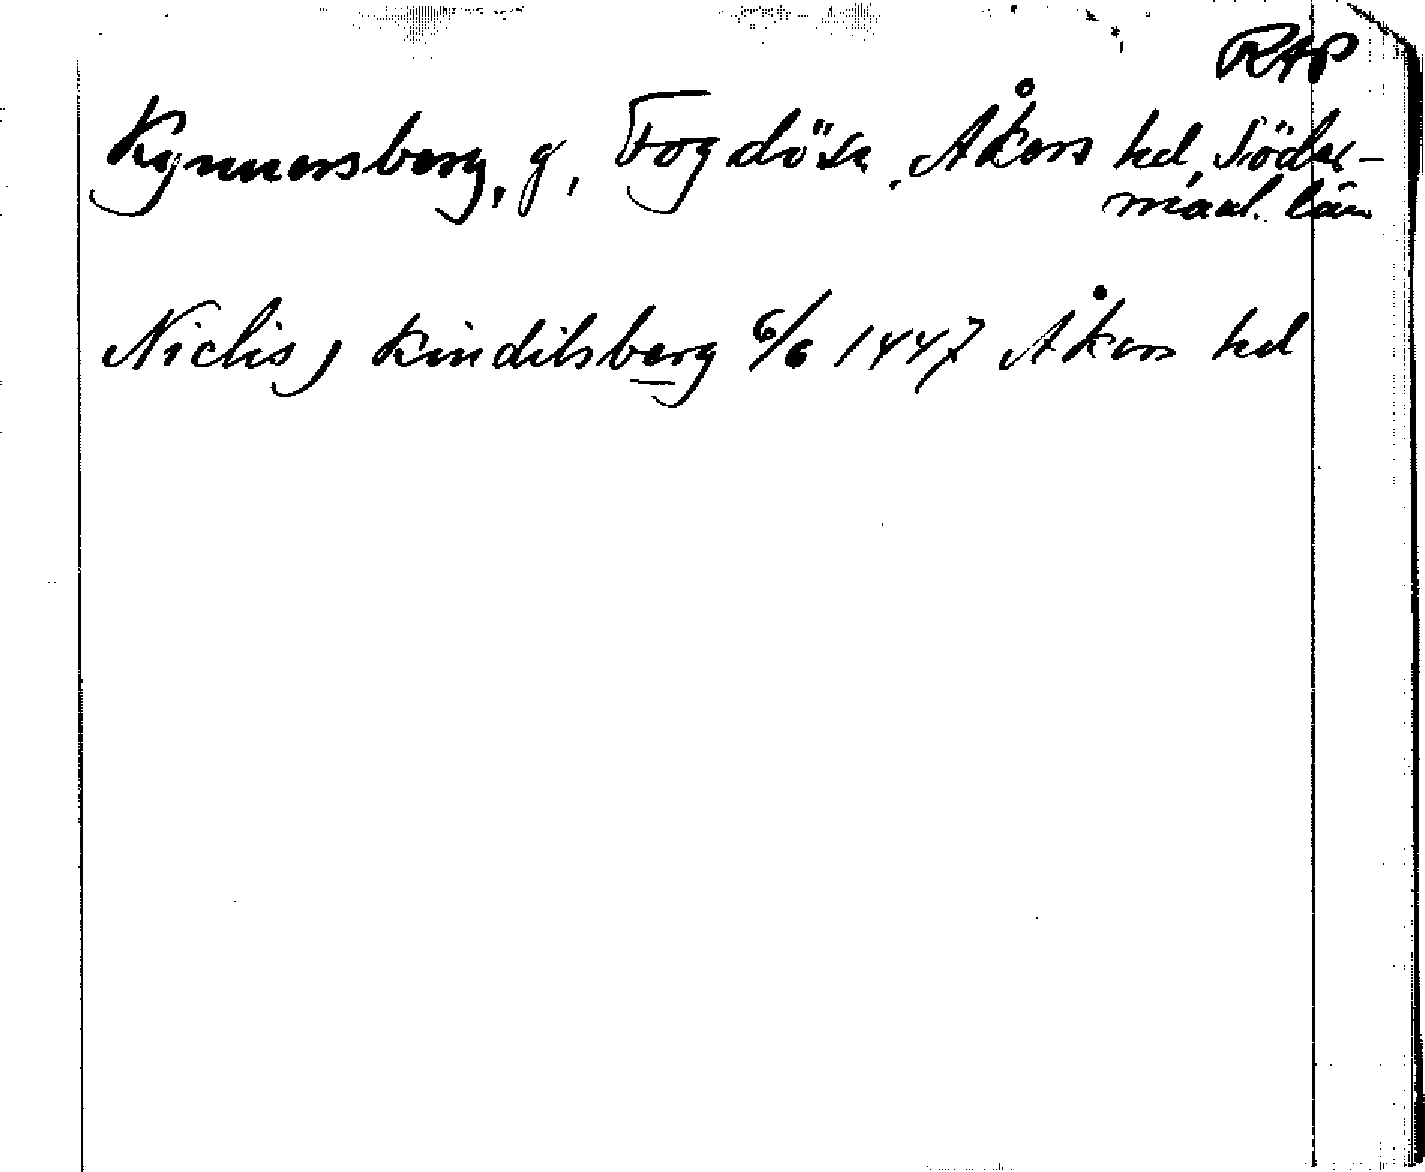 RAP
Kynnersberg, g, Fogdön, Åkers hd, Söder-
manl. län
Niclis j Kindilsberg 6/6 1447 Åkers hd